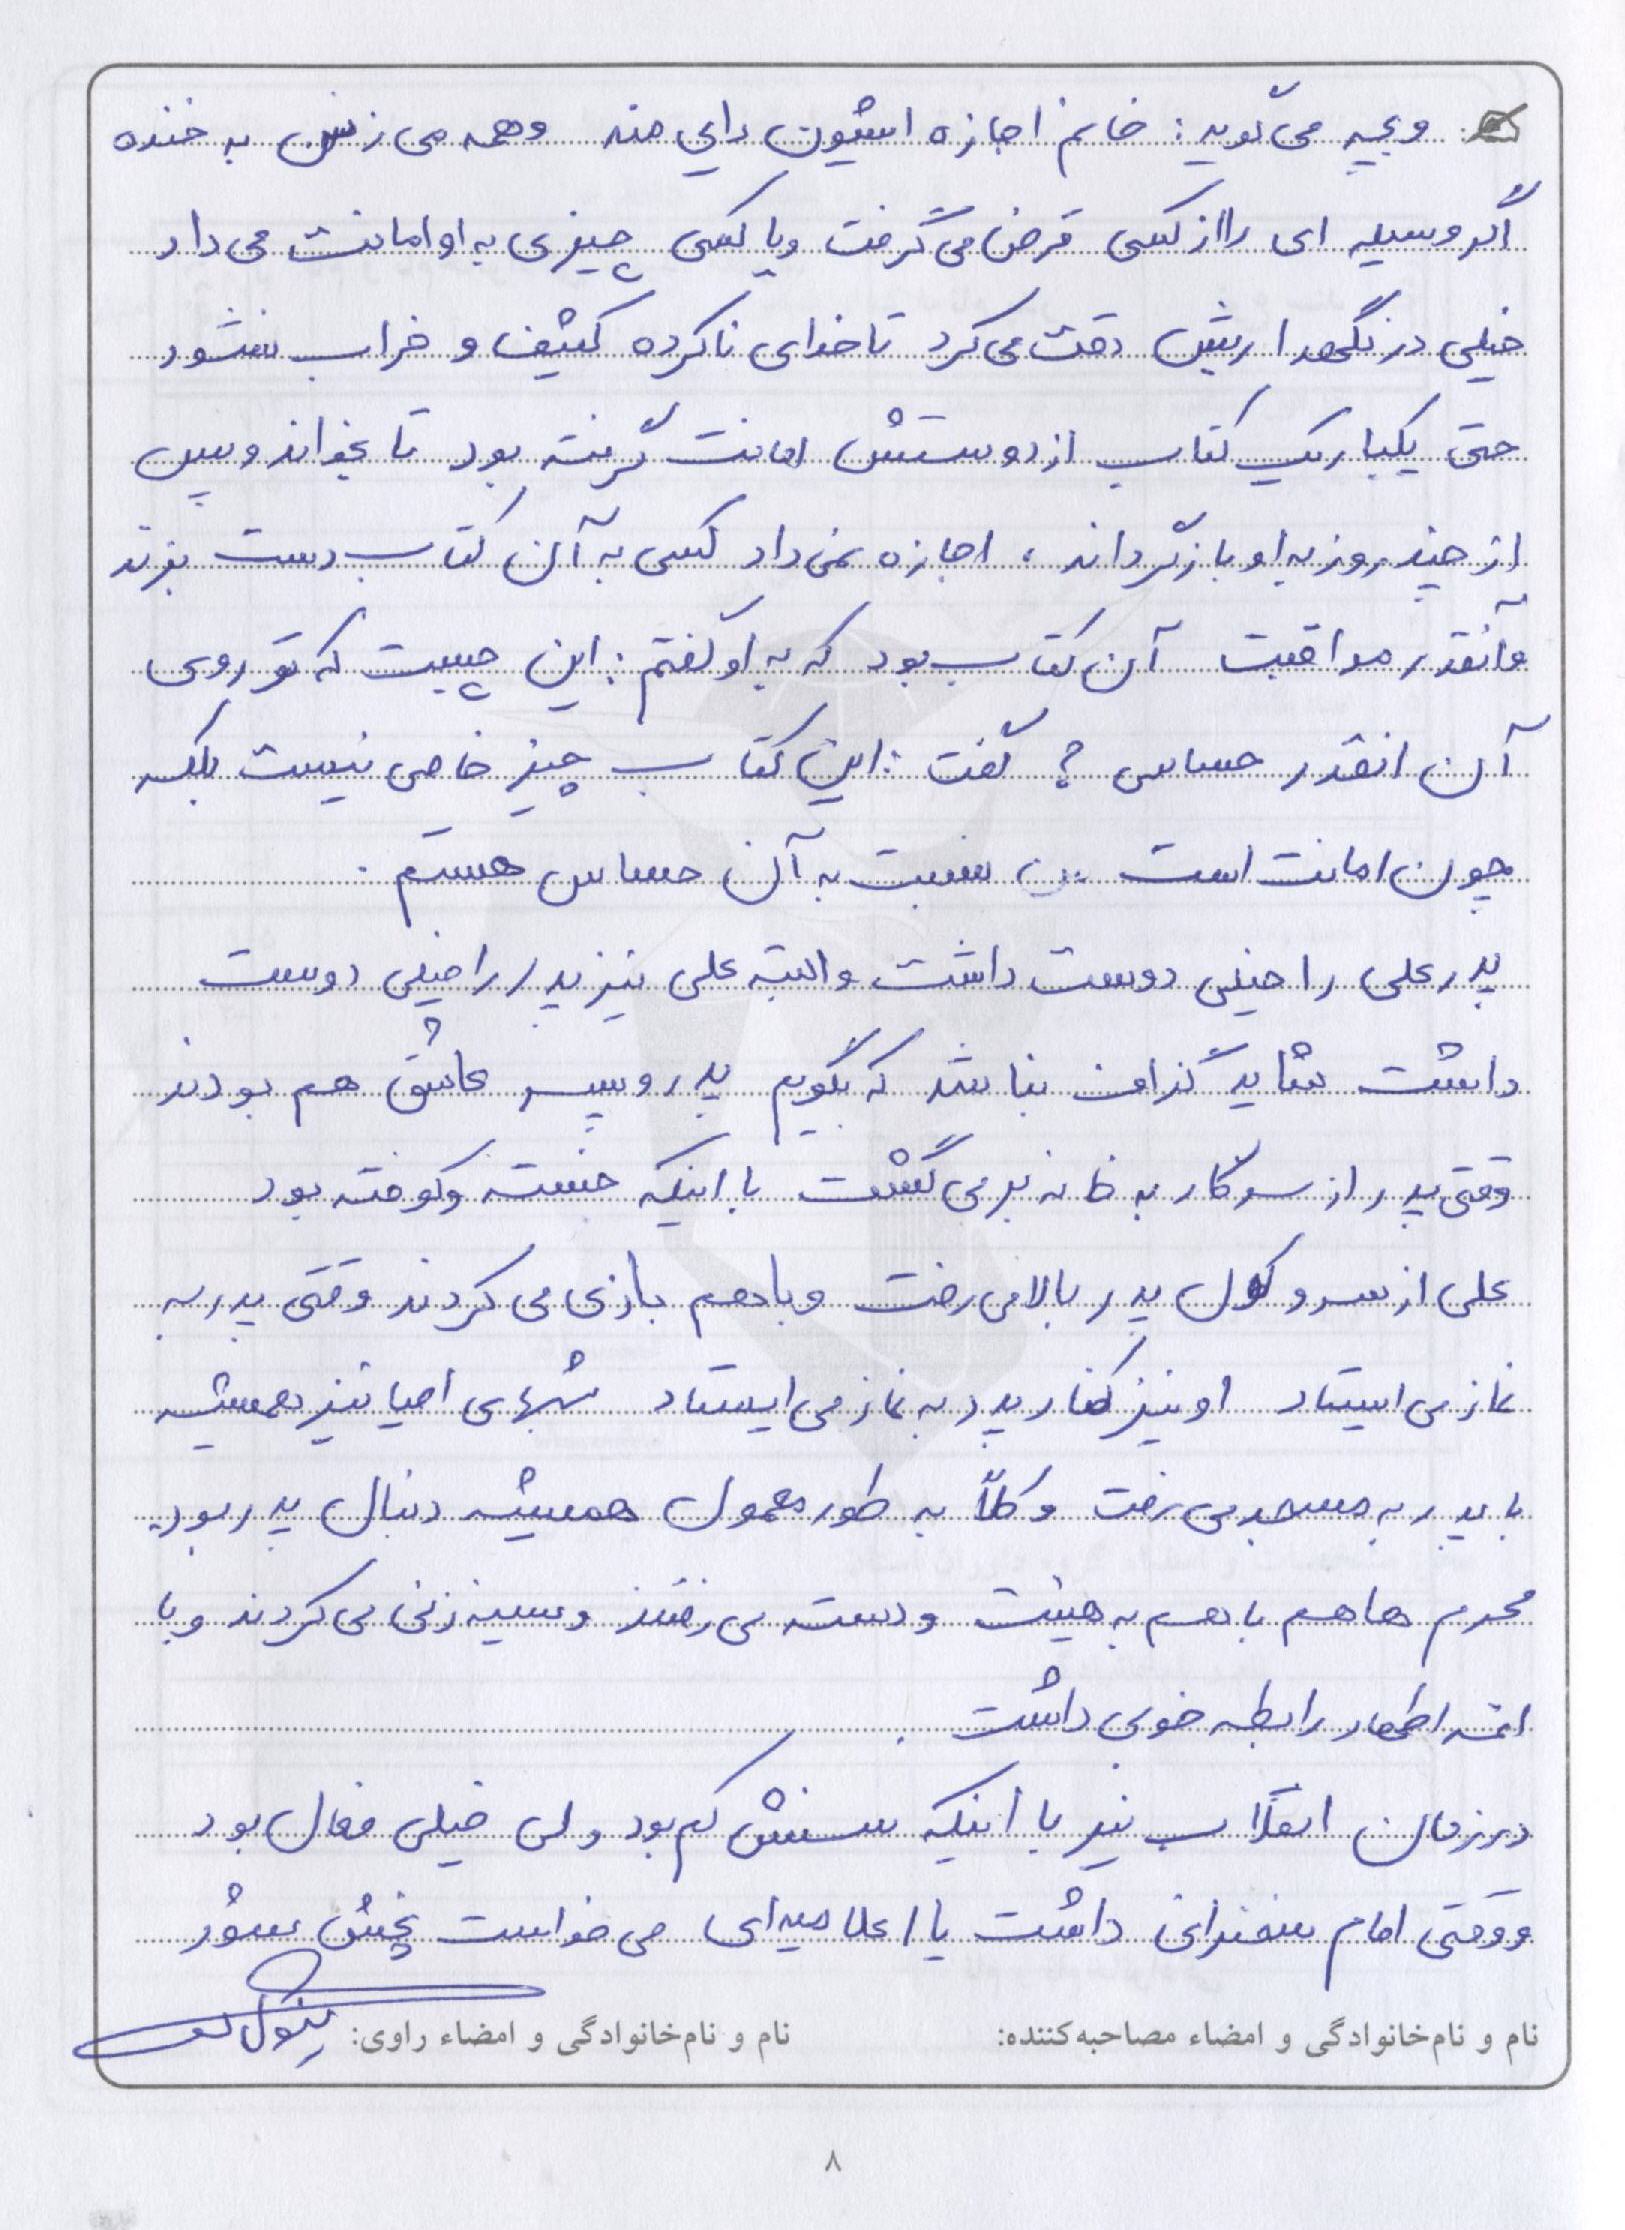 و بچه می گوید: خانم اجازه ایشون دایی منه وهمه می زنن به خنده
اگر وسیله ای را از کسی قرض می گرفت ویا کسی چیزی به او امانت می داد
خیلی در نگهداریش دقت می کرد تا خدای ناکرده کثیف و خراب نشود
حتی یکبار یک کتاب از دوستش امانت گرفته بود تا بخواند و پس
از چند روز به او بازگرداند ، اجازه نمی داد کسی به آن کتاب دست بزند
وآنقدر مواقبت آن کتاب بود که به او گفتم: این چیست که تو روی
آن انقدر حساسی ؟ گفت: این کتاب چیز خاصی نیست بلکه
چون امانت است من نسبت به آن حساس هستم .
پدر علی را خیلی دوست داشت والبته علی نیز پدر را خیلی دوست
داشت شاید گزاف نباشد که بگویم پدر و پسر عاشق هم بودند
وقتی پدر از سر کار به خانه برمی گشت با اینکه خسته و کوفته بود
علی از سر و کول پدر بالا می رفت و با هم بازی می کردند وقتی پدر به
نماز می ایستاد او نیز کنار پدر به نماز می ایستاد شبهای احیا نیز همیشه
با پدر به مسجد می رفت و کلاً به طور معمول همیشه دنبال پدر بود.
محرم ها هم با هم به هیئت و دسته می رفتند و سینه زنی می کردند و با
ائمه اطهار رابطه خوبی داشت .
در زمان انقلاب نیز با اینکه سنش کم بود ولی خیلی فعال بود
و وقتی امام سخنرانی داشت یا اعلامیه ای می خواست پخش بشود
نام و نام‌خانوادگی و امضاء مصاحبه‌کننده: نام و نام‌خانوادگی و امضاء راوی:
۸